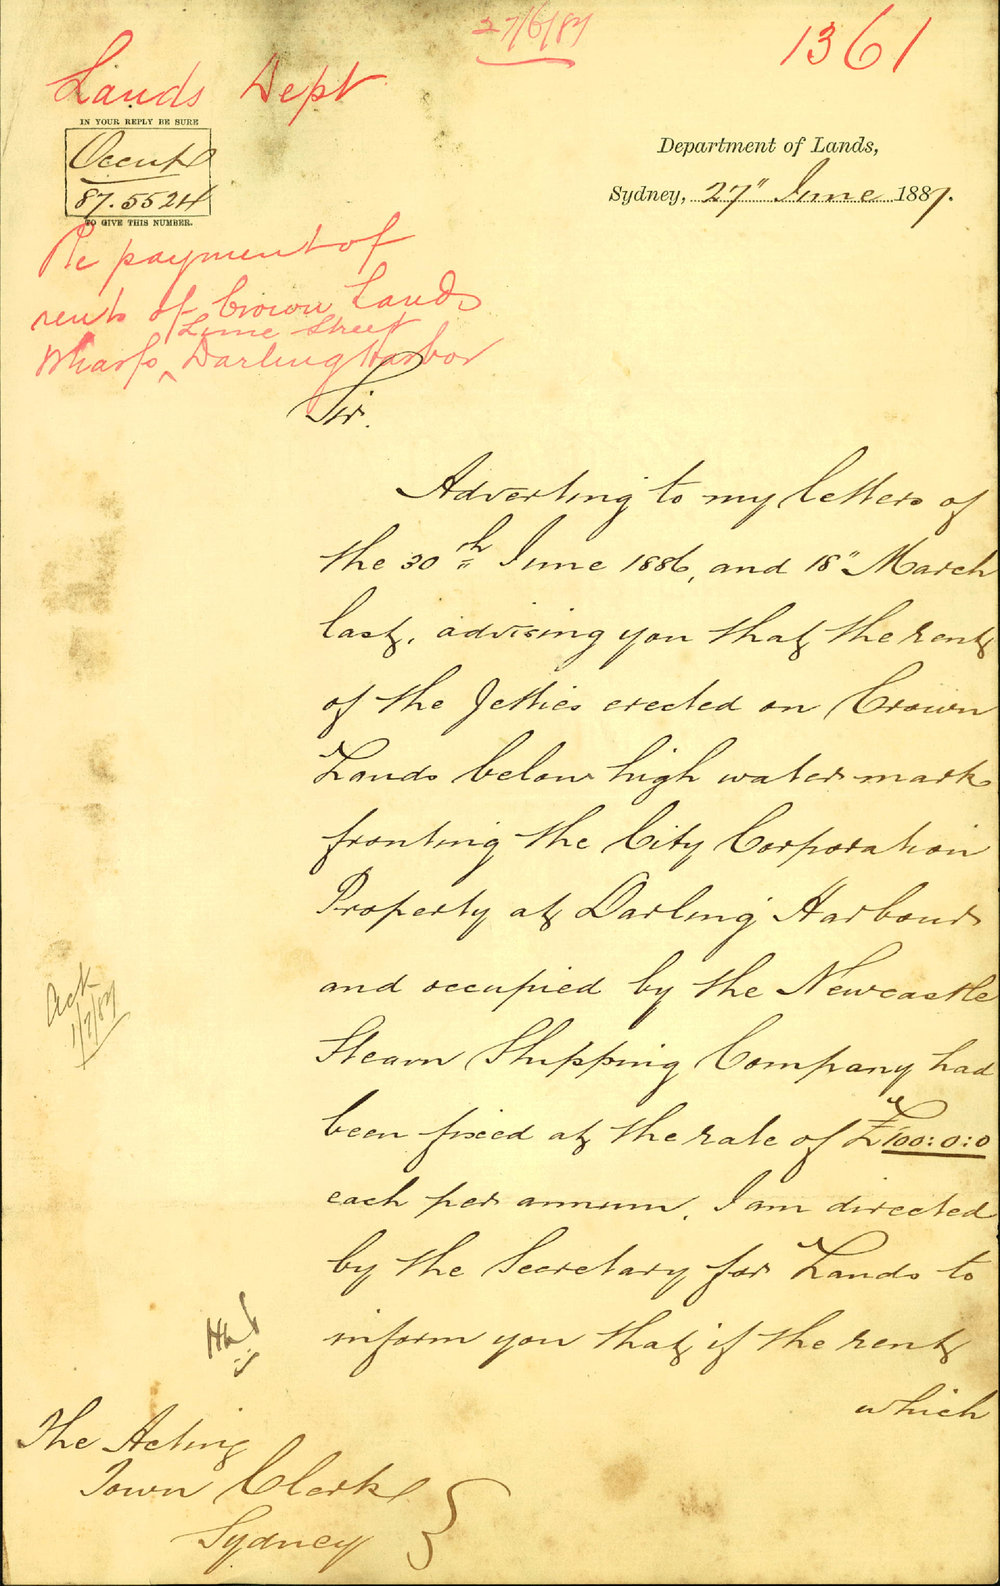 27/6/87
1361
Lands Dept
IN YOUR REPLY BE SURE
Occupn
87.5524
TO GIVE THIS NUMBER.
Department of Lands,
Sydney, 27" June 1887.
Re payment of
rents of Crown Lands
Lime Street
Wharfs ‸ Darling Harbor
Sir.
Adverting to my letters of
the 30th June 1886, and 18" March
last, advising you that the rent
of the Jetties erected on Crown
Lands below high water mark
fronting the City Corporation
Property at Darling Harbour
and occupied by the Newcastle
Steam Shipping Company had
been fixed at the rate of £100:0:0
each per annum. I am directed
by the Secretary for Lands to
inform you that if the rent
which
Ack
1/7/87
The Acting
Town Clerk
Sydney